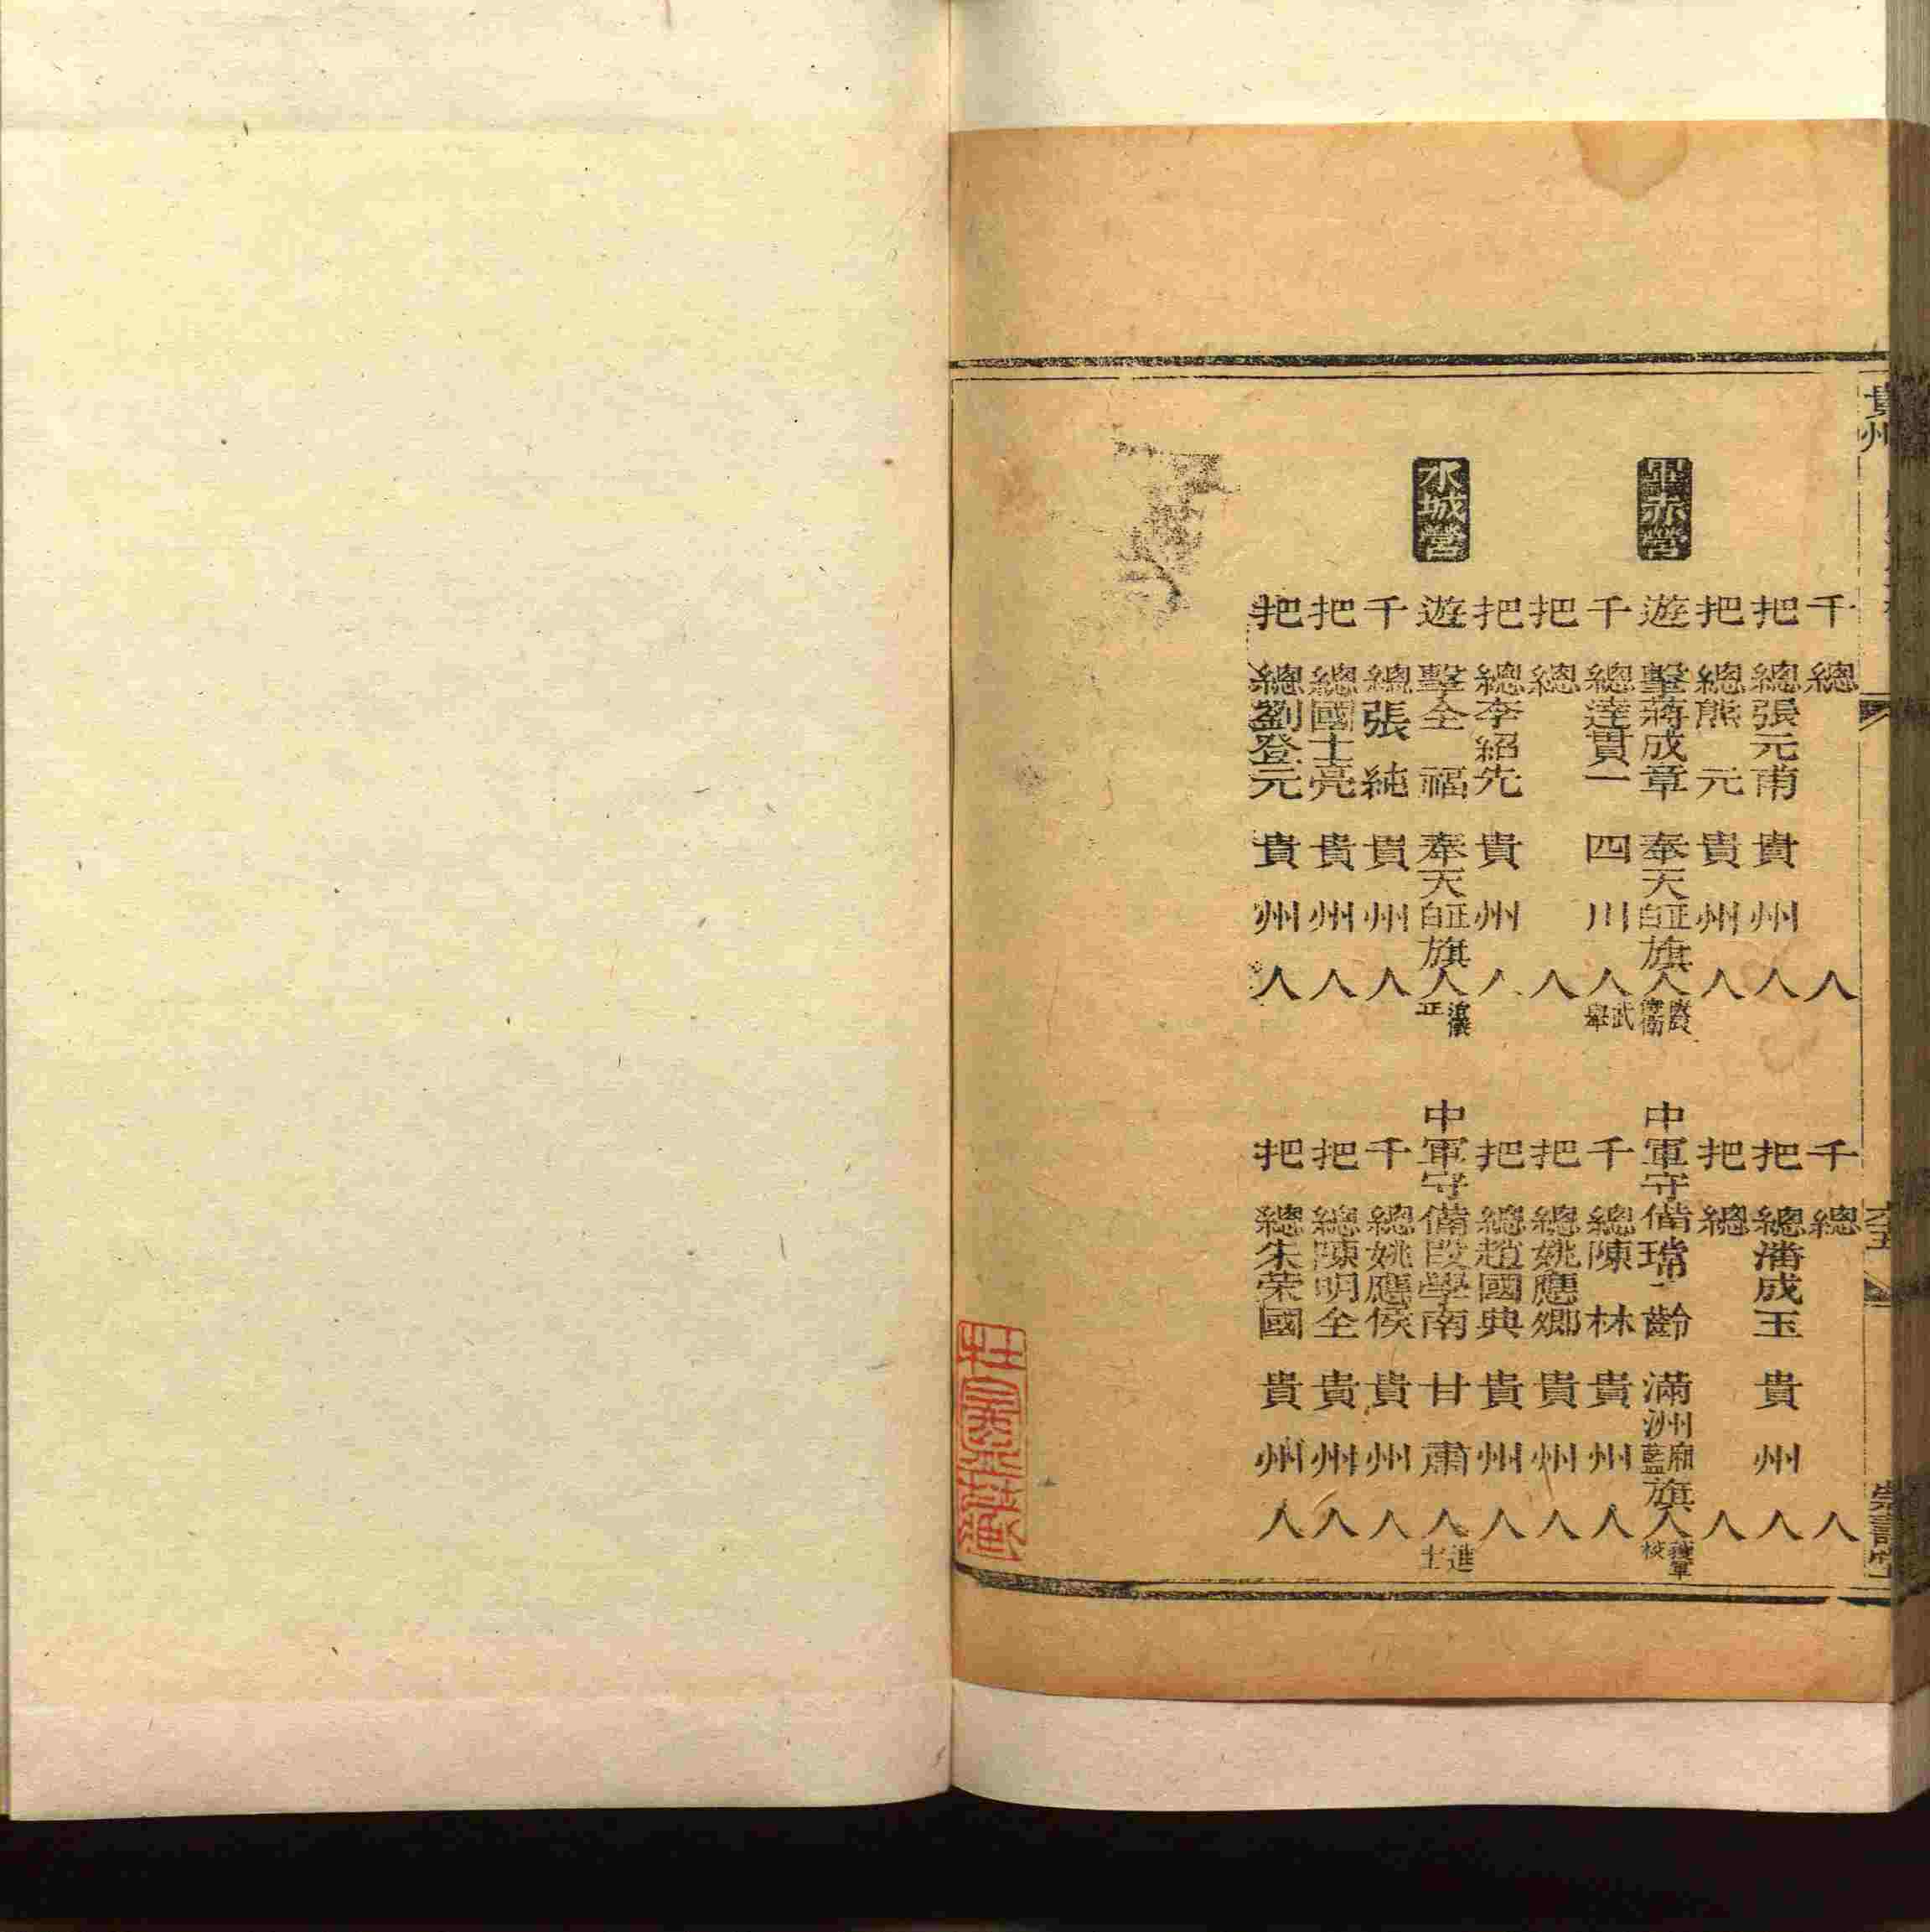 貴州
千總　人　千總　人
把總張元甫貴州人　把總潘成玉貴州人
把總熊元貴州人　把總　人
畢赤營　遊擊蔣成章奉天正白旗人　中軍守備瑞齡滿洲廂藍旗人
千總達貫一四川人武舉　千總陳林貴州人
把總　人　把總姚應鄉貴州人
把總李紹先貴州人　把總趙國典貴州人
水城營　遊擊全福奉天正白旗人　中軍守備段學南甘肅人進士
千總張純貴州人　千總姚應侯貴州人
把總國士亮貴州人　把總陳明全貴州人
把總劉登元貴州人　把總朱荣國貴州人